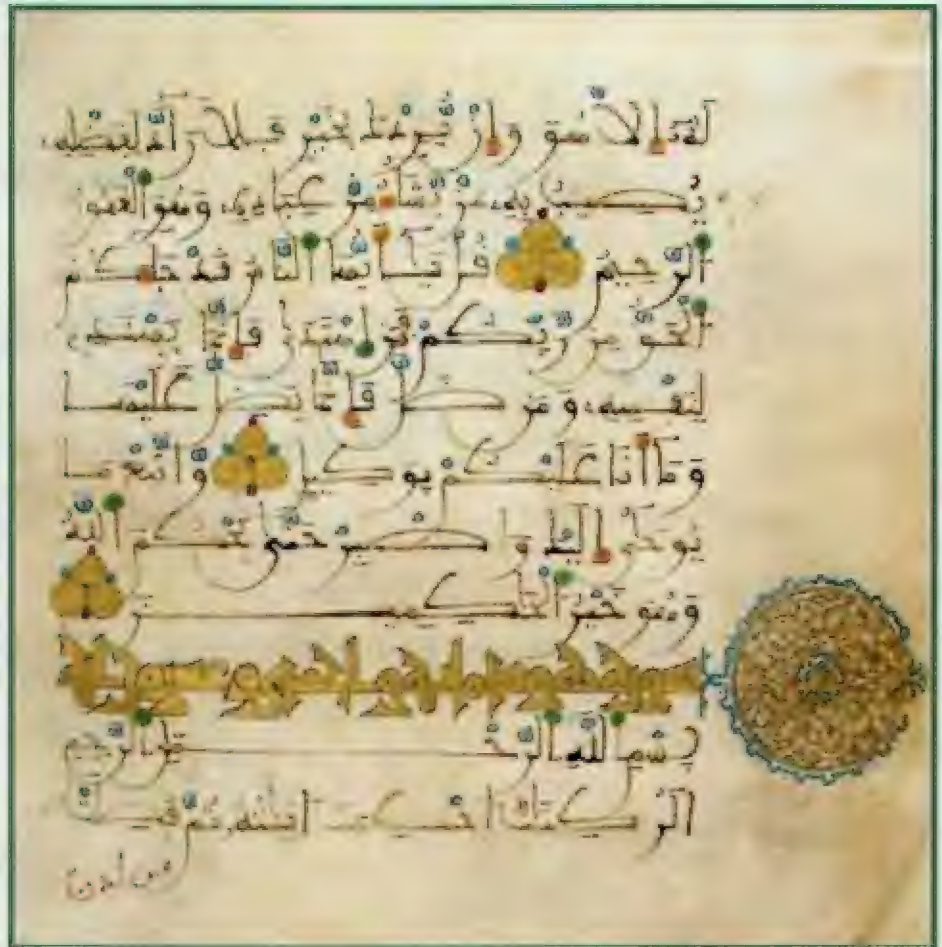 لَهُ إِلَّا هُوَ وَإِنْ يُرِدْكَ بِخَيْرٍ فَلَا رَآدَّ لِفَضْلِهِ
يُصِيبُ بِهِ مَنْ يَشَآءُ مِنْ عِبَادِهِ وَهُوَ الْغَفُورُ
الرَّحِيمُ قُلْ يَٰٓأَيُّهَا النَّاسُ قَدْ جَآءَكُمُ
الْحَقُّ مِنْ رَّبِّكُمْ فَمَنِ اهْتَدَىٰ فَإِنَّمَا يَهْتَدِي
لِنَفْسِهِ وَمَنْ ضَلَّ فَإِنَّمَا يَضِلُّ عَلَيْهَا
وَمَآ أَنَا عَلَيْكُمْ بِوَكِيلٍ وَاتَّبِعْ مَا
يُوحَىٰٓ إِلَيْكَ وَاصْبِرْ حَتَّىٰ يَحْكُمَ اللَّهُ
وَهُوَ خَيْرُ الْحَٰكِمِينَ
بِسْمِ اللَّهِ الرَّحْمَٰنِ الرَّحِيمِ
الٓرٰ كِتَٰبٌ أُحْكِمَتْ ءَايَٰتُهُ ثُمَّ فُصِّلَتْ
من لدن